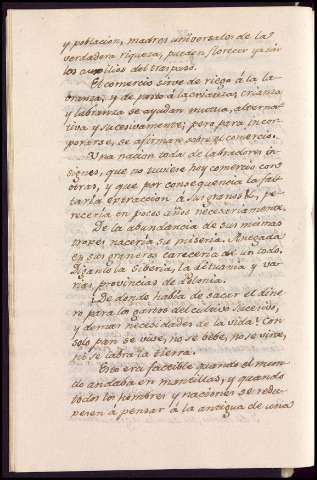 y poblacion, madres universales de la
verdadera riqueza, pueden florecer ya sin
los auxilios del traspaso.
El comercio sirve de riego á la la-
branza, y de pasto á la crianza; crianza
y labranza se ayudan mutua, alterna-
tiva y sucesivamente; pero para incor-
porarse, se afirman sobre el comercio.
Una nacion toda de labradores in-
signes, que no tuviese hoy comercio con
otras, y que por consequencia la fal-
taria extraccion á sus granos &, pe-
receria en pocos años necesariamente.
De la abundancia de sus mismas
troxes naceria su miseria. Anegada
en sus graneros careceria de un todo.
Diganlo la Siberia, la Lituania y va-
rias provincias de Polonia.
¿De donde habia de sacar el dine-
ro para los gastos del cultivo sucesivo,
y demas necesidades de la vida? Con
solo pan se vive, no se bebe, no se viste,
ni se labra la tierra.
Esto era factible quando el mun-
do andaba en mantillas, y quando
todos los hombres y naciones se redu-
xesen á pensar á la antigua de una